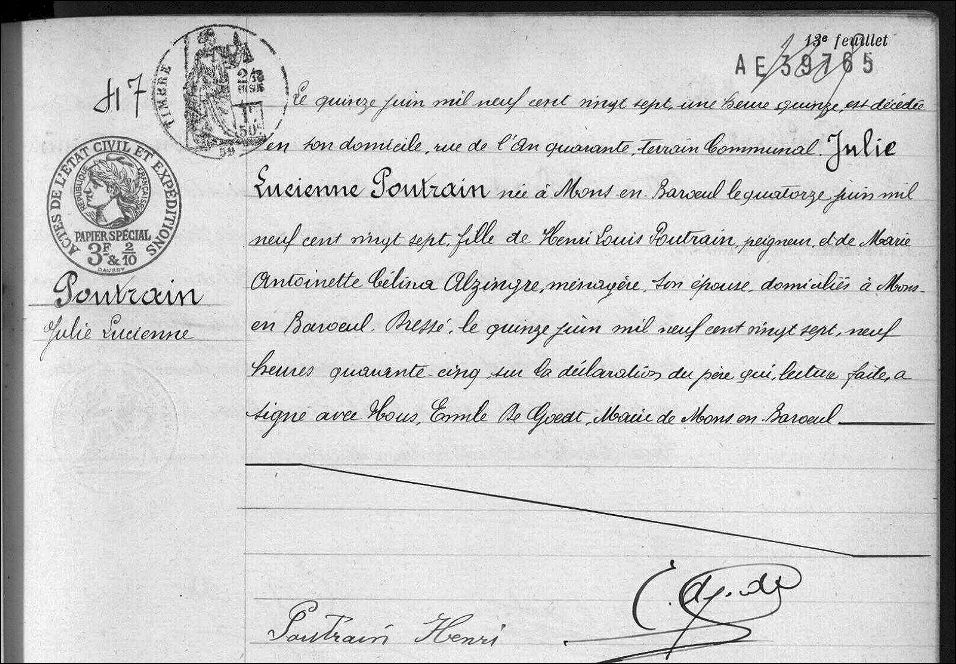 13e feuillet
AE 39765
47
TIMBRE
2/10
EN SUS
1F
50c
59
Le quinze juin mil neuf cent vingt sept, une heure quinze, est décédée
en son domicile, rue de l'An quarante, terrain Communal. Julie
Lucienne Poutrain née à Mons en Baroeul le quatorze juin mil
neuf cent vingt sept, fille de Henri Louis Poutrain, peigneur, et de Marie
Antoinette Célina Alzingre, ménagère, son épouse domiciliés à Mons-
en Baroeul. Dressé, le quinze juin mil neuf cent vingt sept, neuf
heures quarante-cinq sur la déclaration du père qui, lecture faite, a
signé avec Nous, Emile De Goedt, Maire de Mons en Baroeul
ACTES DE L'ETAT CIVIL ET EXPEDITIONS
REPUBLIQUE FRANÇAISE
PAPIER SPECIAL
3F & 2/10
DAUSSY
Poutrain
Julie Lucienne
Poutrain Henri